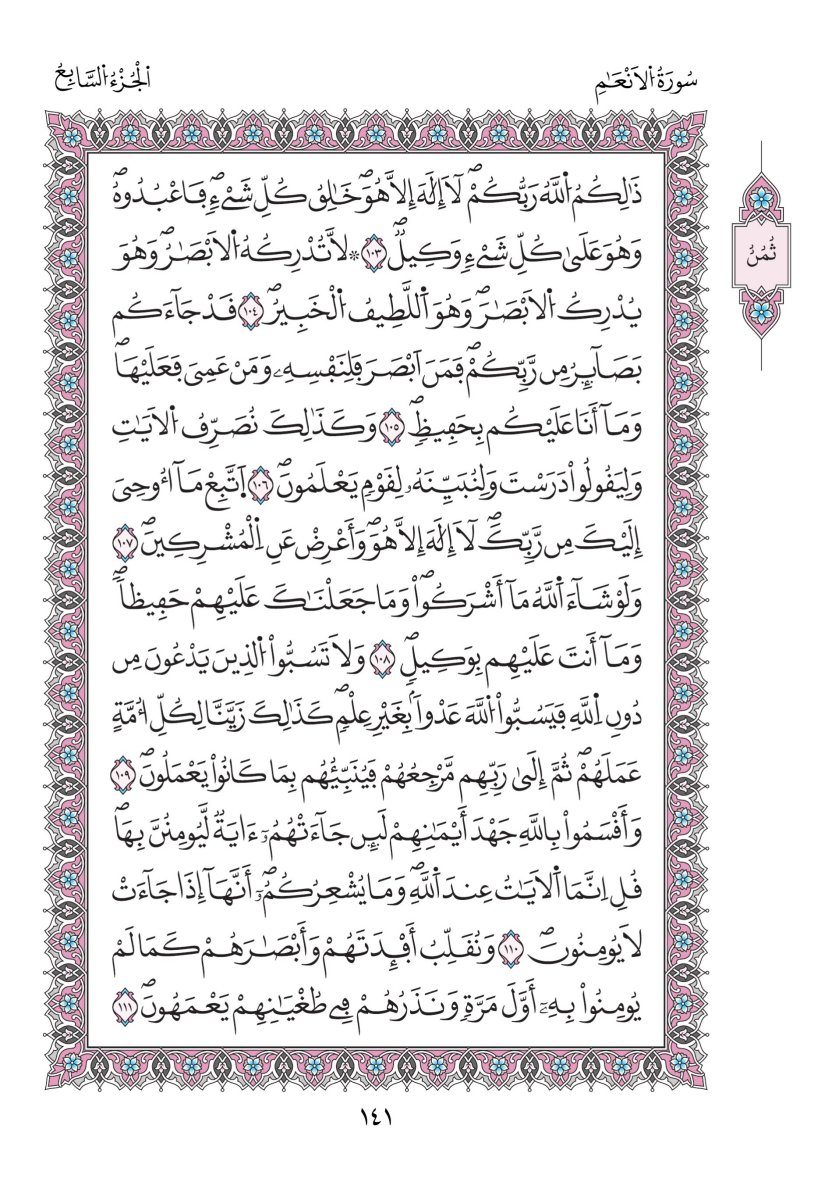 سُورَةُ اُ۬لَانْعَٰمِ
اُ۬لْجُزْءُ اُ۬لسَّابِعُ
ذَٰلِكُمُ اُ۬للَّهُ رَبُّكُمْۖ لَآ إِلَٰهَ إِلَّا هُوَۖ خَٰلِقُ كُلِّ شَےْءٖ فَاعْبُدُوهُۖ
وَهُوَ عَلَىٰ كُلِّ شَےْءٖ وَكِيلٞۖ ١٠٣ ۞ لَّا تُدْرِكُهُ اُ۬لَابْصَٰرُۖ وَهُوَ
يُدْرِكُ اُ۬لَابْصَٰرَۖ وَهُوَ اَ۬للَّطِيفُ اُ۬لْخَبِيرُۖ ١٠٤ قَدْ جَآءَكُم
بَصَآئِرُ مِن رَّبِّكُمْۖ فَمَنَ اَبْصَرَ فَلِنَفْسِهِۦ وَمَنْ عَمِيَ فَعَلَيْهَاۖ
وَمَآ أَنَا عَلَيْكُم بِحَفِيظٖۖ ١٠٥ وَكَذَٰلِكَ نُصَرِّفُ اُ۬لَايَٰتِ
وَلِيَقُولُواْ دَرَسْتَ وَلِنُبَيِّنَهُۥ لِقَوْمٖ يَعْلَمُونَۖ ١٠٦ اَ۪تَّبِعْ مَآ أُوحِيَ
إِلَيْكَ مِن رَّبِّكَۖ لَآ إِلَٰهَ إِلَّا هُوَۖ وَأَعْرِضْ عَنِ اِ۬لْمُشْرِكِينَۖ ١٠٧
وَلَوْ شَآءَ اَ۬للَّهُ مَآ أَشْرَكُواْۖ وَمَا جَعَلْنَٰكَ عَلَيْهِمْ حَفِيظاٗۖ
وَمَآ أَنتَ عَلَيْهِم بِوَكِيلٖۖ ١٠٨ وَلَا تَسُبُّواْ اُ۬لذِينَ يَدْعُونَ مِن
دُونِ اِ۬للَّهِ فَيَسُبُّواْ اُ۬للَّهَ عَدْواَۢ بِغَيْرِ عِلْمٖۖ كَذَٰلِكَ زَيَّنَّا لِكُلِّ أُمَّةٍ
عَمَلَهُمْۖ ثُمَّ إِلَىٰ رَبِّهِم مَّرْجِعُهُمْ فَيُنَبِّئُهُم بِمَا كَانُواْ يَعْمَلُونَۖ ١٠٩
وَأَقْسَمُواْ بِاللَّهِ جَهْدَ أَيْمَٰنِهِمْ لَئِن جَآءَتْهُمُۥٓ ءَايَةٞ لَّيُومِنُنَّ بِهَاۖ
قُلِ اِنَّمَا اَ۬لَايَٰتُ عِندَ اَ۬للَّهِۖ وَمَا يُشْعِرُكُمُۥٓۖ أَنَّهَآ إِذَا جَآءَتْ
لَا يُومِنُونَۖ ١١٠ وَنُقَلِّبُ أَفْـِٕدَتَهُمْ وَأَبْصَٰرَهُمْ كَمَا لَمْ
يُومِنُواْ بِهِۦٓ أَوَّلَ مَرَّةٖ وَنَذَرُهُمْ فِے طُغْيَٰنِهِمْ يَعْمَهُونَۖ ١١١
ثُمُنُ
١٤١